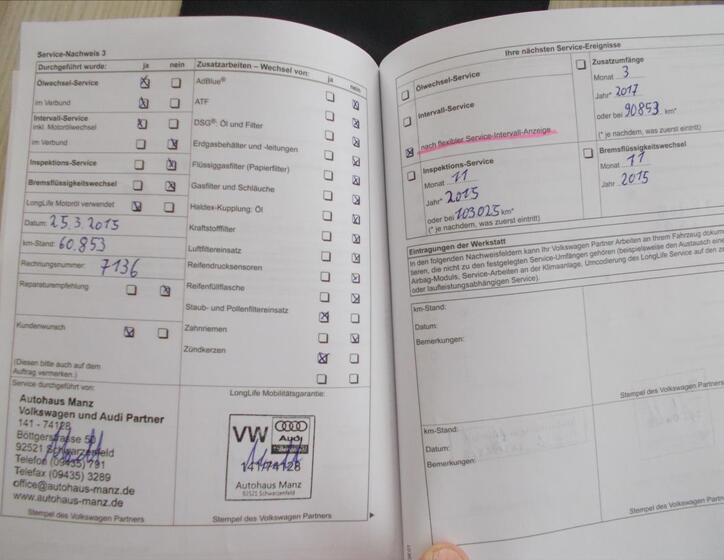 Service-Nachweis 3
Durchgeführt wurde: ja nein
Ölwechsel-Service
im Verbund
Intervall-Service
inkl. Motorölwechsel
im Verbund
Inspektions-Service
Bremsflüssigkeitswechsel
LongLife Motoröl verwendet
Datum: 25.3.2015
km-Stand: 60.853
Rechnungsnummer: 7136
Reparaturempfehlung
Kundenwunsch
(Diesen bitte auch auf dem
Auftrag vermerken.)
Service durchgeführt von:
Autohaus Manz
Volkswagen und Audi Partner
141 - 74128
Böttgerstrasse 50
92521 Schwarzenfeld
Telefon (09435) 791
Telefax (09435) 3289
office@autohaus-manz.de
www.autohaus-manz.de
Stempel des Volkswagen Partners
Zusatzarbeiten – Wechsel von: ja nein
AdBlue®
ATF
DSG®: Öl und Filter
Erdgasbehälter und -leitungen
Flüssiggasfilter (Papierfilter)
Gasfilter und Schläuche
Haldex-Kupplung: Öl
Kraftstofffilter
Luftfiltereinsatz
Reifendrucksensoren
Reifenfüllflasche
Staub- und Pollenfiltereinsatz
Zahnriemen
Zündkerzen
LongLife Mobilitätsgarantie:
VW Audi
141/74128
Autohaus Manz
92521 Schwarzenfeld
Stempel des Volkswagen Partners
Ihre nächsten Service-Ereignisse
Ölwechsel-Service
Intervall-Service
nach flexibler Service-Intervall-Anzeige
Inspektions-Service
Monat 11
Jahr* 2015
oder bei 103025 km*
(* je nachdem, was zuerst eintritt)
Zusatzumfänge
Monat 3
Jahr* 2017
oder bei 90853 km*
(* je nachdem, was zuerst eintritt)
Bremsflüssigkeitswechsel
Monat 11
Jahr 2015
Eintragungen der Werkstatt
In den folgenden Nachweisfeldern kann Ihr Volkswagen Partner Arbeiten an Ihrem Fahrzeug dokum
tieren, die nicht zu den festgelegten Service-Umfängen gehören (beispielsweise den Austausch eine
Airbag-Moduls, Service-Arbeiten an der Klimaanlage, Umcodierung des LongLife Service auf den z
oder laufleistungsabhängigen Service).
km-Stand:
Datum:
Bemerkungen:
Stempel des Volkswagen Partn
km-Stand:
Datum:
Bemerkungen:
Stempel des Volkswagen Par